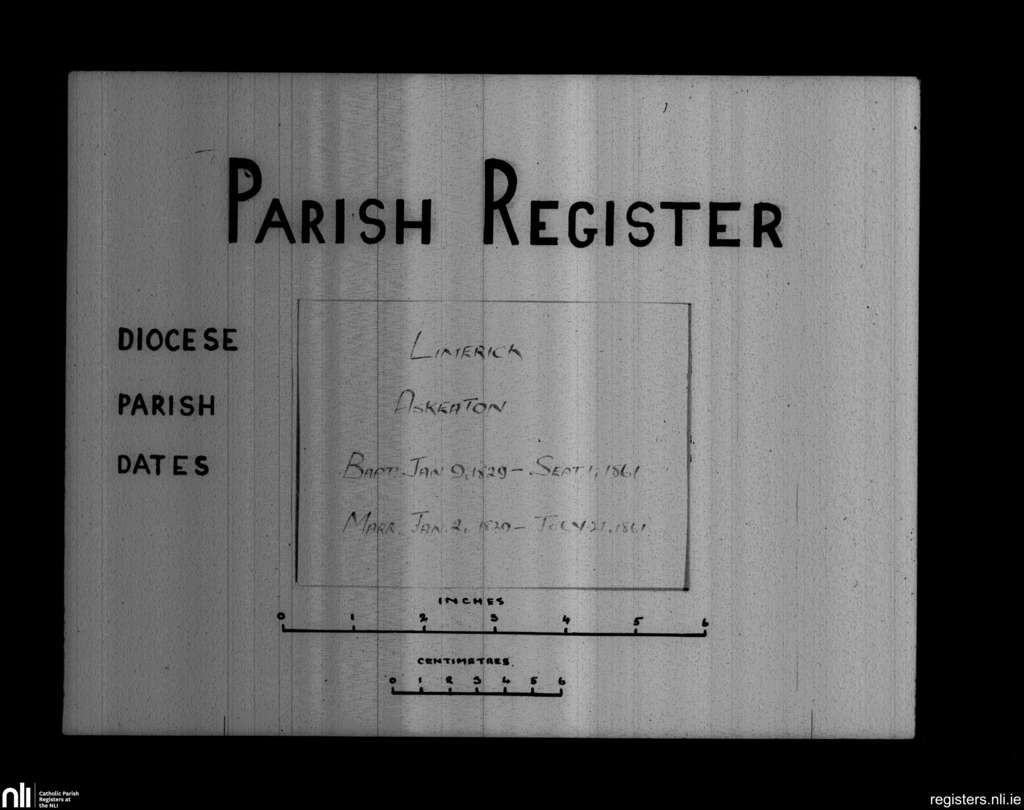 PARISH REGISTER
DIOCESE LIMERICK
PARISH ASKEATON
DATES BAPT. JAN 9, 1829 – SEPT 1, 1861
MARR. JAN. 2, 1829 – JULY 21, 1861
INCHES
0 1 2 3 4 5 6
CENTIMETRES
0 1 2 3 4 5 6
nli Catholic Parish
Registers at
the NLI
registers.nli.ie